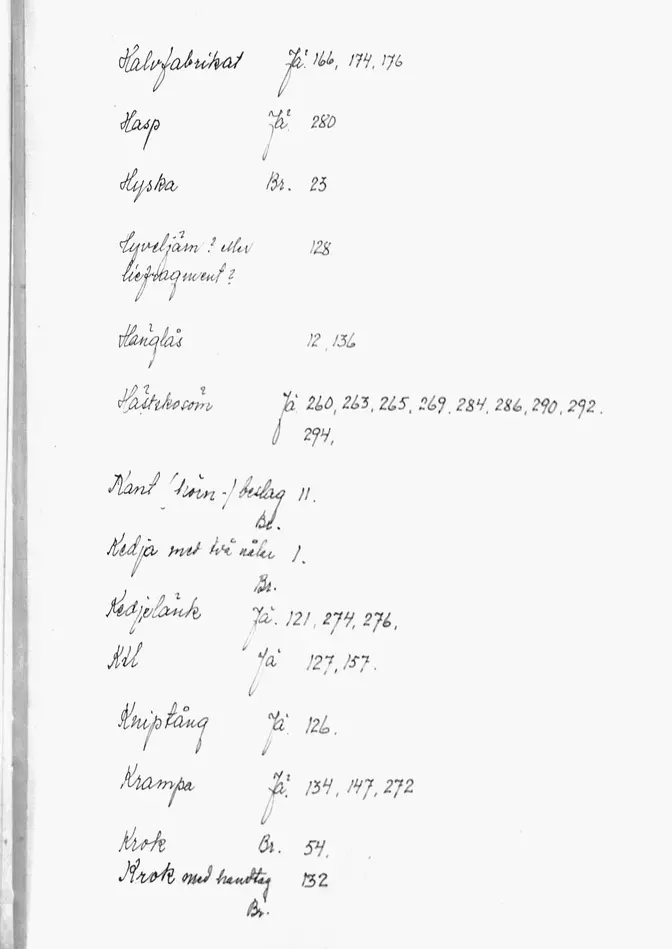 Halvfabrikat Jä. 166, 174, 176
Hasp Jä. 280
Hyska Br. 23
Hyveljärn? eller 128
liefragment?
Hänglås 12, 136
Hästskosöm Jä 260, 263, 265, 269, 284, 286, 290, 292.
294.
Kant (hörn-) beslag 11.
Br.
Kedja med två nålar 1.
Br.
Kedjelänk Jä. 121, 274, 276.
Kil Jä 127, 157.
Kniptång Jä. 126.
Krampa Jä. 134, 147, 272
Krok Br. 54.
Krok med handtag 132
Br.